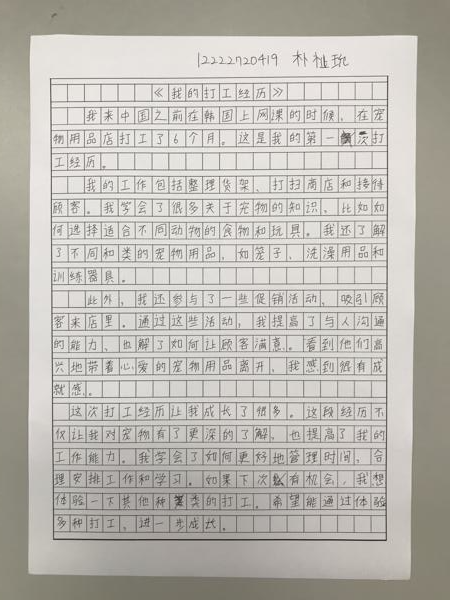 12222720419 朴祉琓
《我的打工经历》
我来中国之前在韩国上网课的时候，在宠
物用品店打工了6个月。这是我的第一次打
工经历。
我的工作包括整理货架、打扫商店和接待
顾客。我学会了很多关于宠物的知识，比如如
何选择适合不同动物的食物和玩具。我还了解
了不同和类的宠物用品，如笼子，洗澡用品和
训练器具。
此外，我还参与了一些促销活动，吸引顾
客来店里。通过这些活动，我提高了与人沟通
的能力、也解了如何让顾客满意。看到他们高
兴地带着心爱的宠物用品离开，我感到很有成
就感。
这次打工经历让我成长了很多。这段经历不
仅让我对宠物有了更深的了解，也提高了我的
工作能力。我学会了如何更好地管理时间，合
理安排工作和学习。如果下次有机会，我想
体验一下其他种类的打工。希望能通过体验
多种打工，进一步成长。